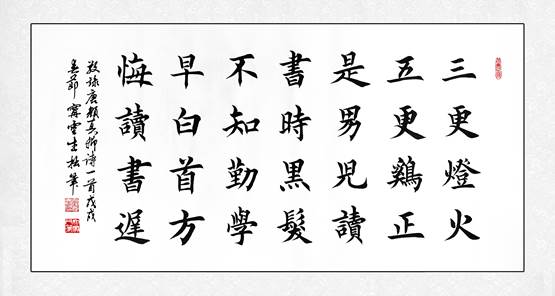 三更燈火
五更鷄正
是男兒讀
書時黑髮
不知勤學
早白首方
悔讀書遲
唐顏真卿詩一首戊戌